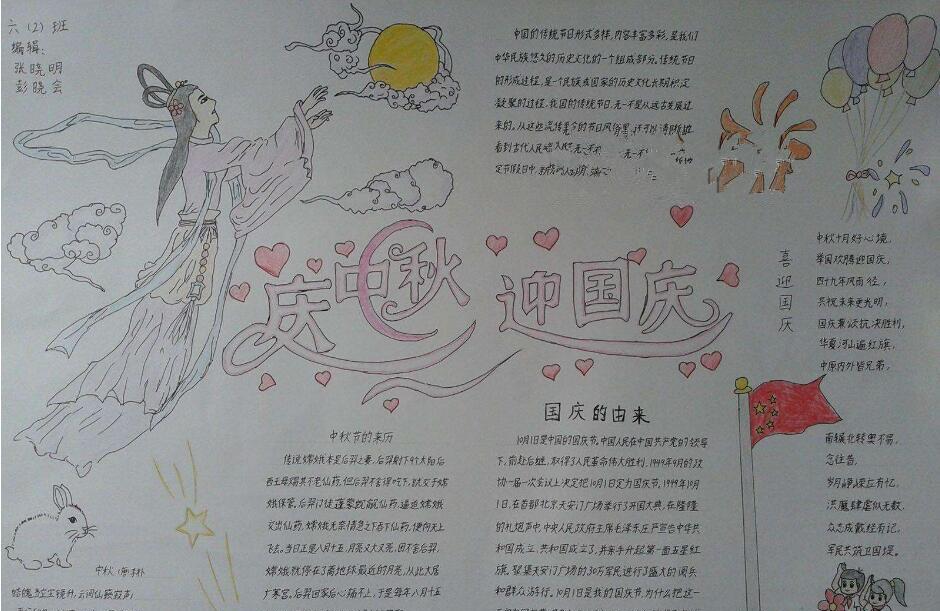 六（2）班
编辑：
张晓明
彭晓会
中国的传统节日形式多样，内容丰富多彩，是我们
中华民族悠久的历史文化的一个组成部分。传统节日
的形成过程，是一个民族或国家的历史文化长期积淀
凝聚的过程，我国的传统节日，无一不是从远古发展过
来的。从这些流传至今的节日风俗里，还可以清晰地
看到古代人民
定节假日中
庆中秋 迎国庆
喜迎国庆
中秋十月好心境，
举国欢腾迎国庆，
四十九年风雨径，
共祝未来更光明，
国庆兼颂抗决胜利，
华夏河山遍红旗，
中原内外皆兄弟，
南辕北转要不易，
忘往昔，
岁月峥嵘应有忆，
洪魔肆虐似无数，
众志成
军民共筑卫国堤。
中秋节的来历
传说嫦娥本是后羿之妻，后羿射下9个太阳后
西王母赐其不老仙药，但后羿不舍得吃下，就交于嫦
娥保管。后羿门徒蓬蒙觊觎仙药，逼迫嫦娥
交出仙药，嫦娥无奈情急之下吞下仙药，便向天上
飞去。当日正是八月十五，月亮又大又亮，因不舍后羿，
嫦娥就停在了离地球最近的月亮，从此长居
广寒宫。后羿回家后心痛不止，于是每年八月十五
国庆的由来
10月1日是中国的国庆节，中国人民在中国共产党的领导
下，前赴后继，取得了人民革命伟大胜利，1949年9月的政
协一届一次会议上决定把10月1日定为国庆节。1949年10月
1日，在首都北京天安门广场举行了开国大典，在隆隆
的礼炮声中，中央人民政府主席毛泽东庄严宣告中华共
和国成立，共和国成立了，并亲手升起第一面五星红
旗。聚集天安门广场的30万军民进行了盛大的阅兵
和群众游行。10月1日是我的国庆节，为什么把这一
中秋（唐·李朴
皓魄当空宝镜升，云间仙籁寂声；